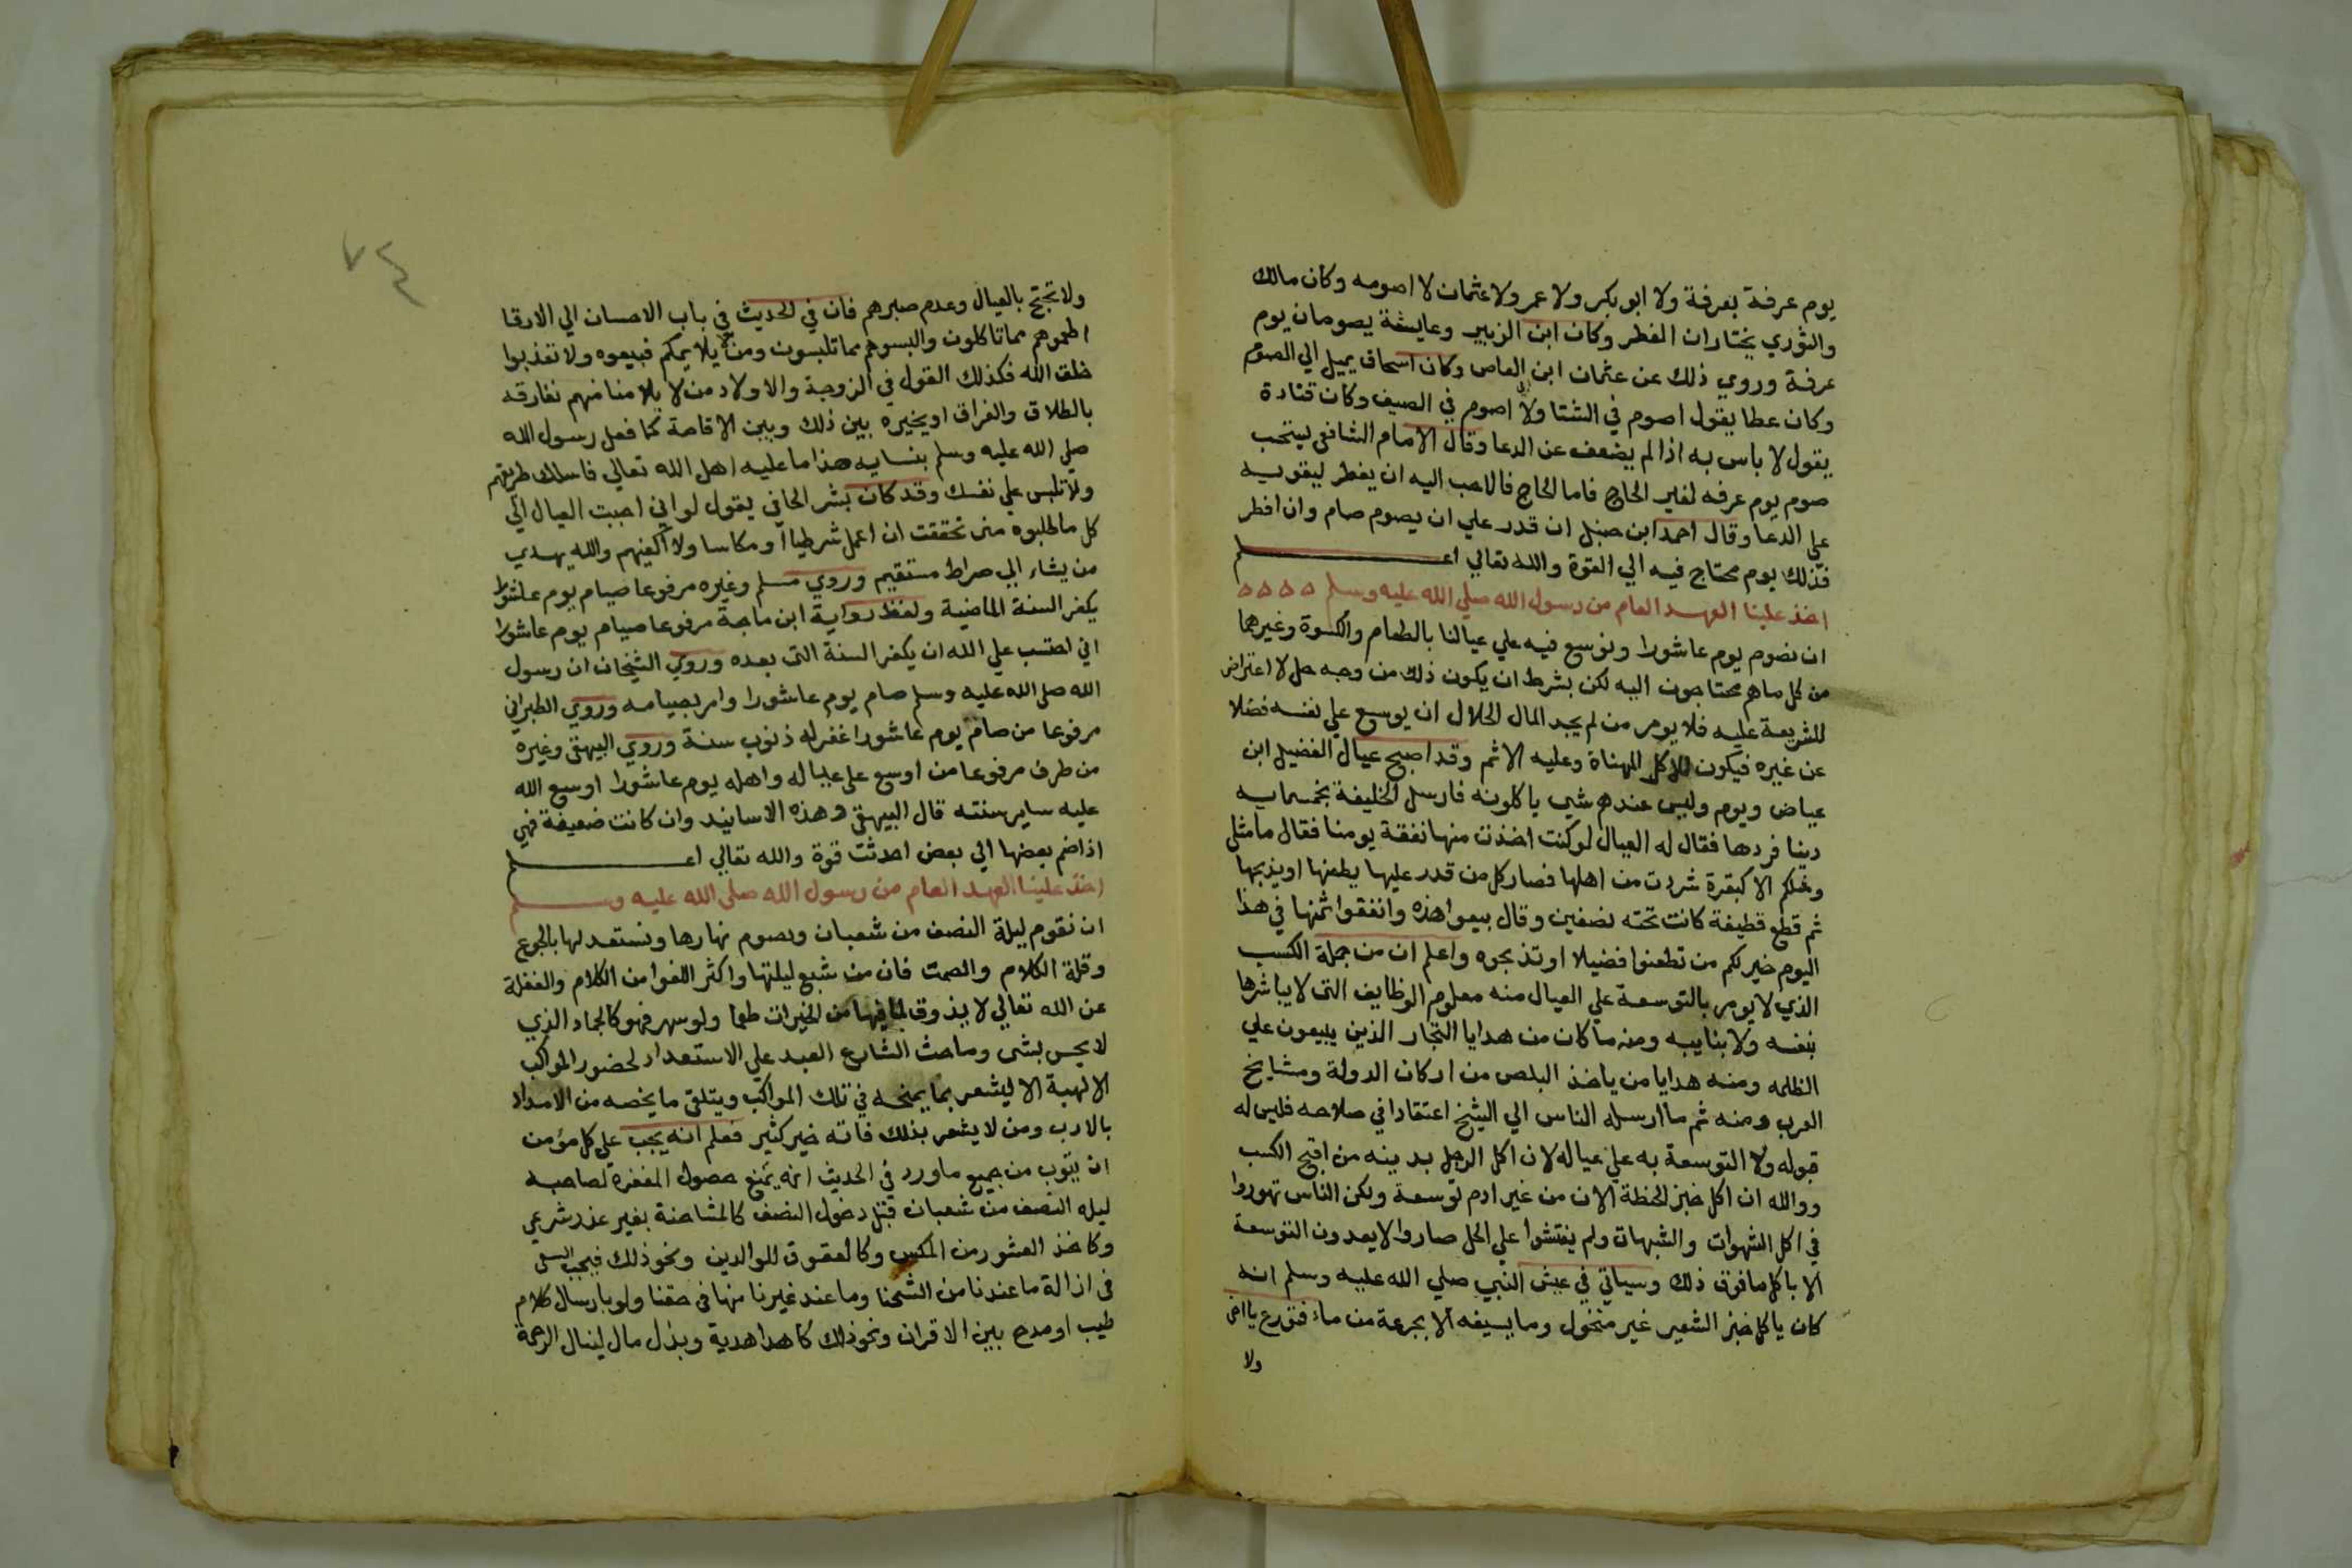 يوم عرفة بعرفة ولا ابو بكر ولا عمر ولا عثمان لا اصومه وكان مالك
والثوري يختاران الفطر وكان ابن الزبير وعايشة يصومان يوم
عرفة وروي ذلك عن عثمان ابن العاص وكان اسحاق يميل الي الصوم
وكان عطا يقول اصوم في الشتا ولا اصوم في الصيف وكان قتادة
يقول لا باس به اذا لم يضعف عن الدعا وقال الامام الشافعي يستحب
صوم يوم عرفه لغير الحاج فاما الحاج فالاحب اليه ان يفطر ليقويه
علي الدعا وقال احمد ابن حنبل ان قدر علي ان يصوم صام وان افطر
فذلك يوم محتاج فيه الي القوة والله تعالي اعلم
اخذ علينا العهد العام من رسول الله صلي الله عليه وسلم
ان نصوم يوم عاشورا ونوسع فيه علي عيالنا بالطعام والكسوة وغيرهما
من كل ما هم محتاجون اليه لكن بشرط ان يكون ذلك من وجه حل لا اعتراض
للشريعة عليه فلا يومر من لم يجد المال الحلال ان يوسع علي نفسه فضلا
عن غيره فيكون للاكل المهناة وعليه الاثم وقد اصبح عيال الفضيل ابن
عياض ويوم وليس عندهم شي ياكلونه فارسل الخليفة بخمسمايه
دينا فردها فقال له العيال لو كنت اخذت منها نفقة يومنا فقال ما مثلي
ومثلكم الا كبقرة شردت من اهلها فصار كل من قدر عليها يطعنها او يذبحها
ثم قطع قطيفة كانت تحته نصفين وقال بيعوا هذه وانفقوا ثمنها في هذا
اليوم خير لكم من تطعنوا فضيلا او تذبحوه واعلم ان من جملة الكسب
الذي لا يومر بالتوسعة علي العيال منه معلوم الوظايف التي لا يباشرها
بنفسه ولا بنايبه ومنه ما كان من هدايا التجار الذين يبيعون علي
الظلمه ومنه هدايا من ياخذ البلص من اركان الدولة ومشايخ
العرب ومنه ثم ما ارسله الناس الي الشيخ اعتقادا في صلاحه فليس له
قبوله ولا التوسعة به علي عياله لان اكل الرجل بدينه من اقبح الكسب
ووالله ان اكل خبز الحنظة الان من غير ادم توسعة ولكن الناس تهوروا
في اكل الشهوات والشبهات ولم يفتشوا علي الحل صاروا لا يعدون التوسعة
الا باكل ما فوق ذلك وسياتي في عيش النبي صلي الله عليه وسلم انه
كان ياكل خبز الشعير غير منخول وما يسيغه الا بجرعة من ماء فتورع يا اخي
ولا
٧٤
ولا تحتج بالعيال وعدم صبرهم فان في الحديث في باب الاحسان الي الارقا
اطعموهم مما تاكلون والبسوهم مما تلبسون ومن لا يلايمكم فبيعوه ولا تعذبوا
خلق الله فكذلك القول في الزوجة والاولاد من لا يلامنا منهم نفارقه
بالطلاق والفراق او يخيره بين ذلك وبين الاقامة كما فعل رسول الله
صلي الله عليه وسلم بنسايه هذا ما عليه اهل الله تعالي فاسلك طريقهم
ولا تلبس علي نفسك وقد كان بشر الحافي يقول لو اني اجبت العيال الي
كل ما طلبوه مني تحققت ان اعمل شرطيا او مكاسا ولا اكفيهم والله يهدي
من يشاء الي صراط مستقيم وروي مسلم وغيره مرفوعا صيام يوم عاشورا
يكفر السنة الماضية ولفظ رواية ابن ماجة مرفوعا صيام يوم عاشورا
اني احتسب علي الله ان يكفر السنة التي بعده وروي الشيخان ان رسول
الله صلى الله عليه وسلم صام يوم عاشورا وامر بصيامه وروي الطبراني
مرفوعا من صام يوم عاشورا غفر له ذنوب سنة وروي البيهقي وغيره
من طرف مرفوعا من اوسع على عياله واهله يوم عاشورا اوسع الله
عليه ساير سنته قال البيهقي وهذه الاسانيد وان كانت ضعيفة فهي
اذا ضم بعضها الي بعض احدثت قوة والله تعالي اعلم
اخذ علينا العهد العام من رسول الله صلى الله عليه وسلم
ان نقوم ليلة النصف من شعبان ونصوم نهارها ونستعد لها بالجوع
وقلة الكلام والصمت فان من شبع ليلتها واكثر اللغوا من الكلام والغفلة
عن الله تعالي لا يذوق لما فيها من الخيرات طعما ولو سهر فهو كالجماد الذي
لا يحس بشى وما حث الشارع العبد علي الاستعداد لحضور المواكب
الالهية الا ليشعر بما يمنحه في تلك المواكب ويتلقي ما يخصه من الامداد
بالادب ومن لا يشعر بذلك فاته خير كثير فعلم انه يجب علي كل مؤمن
ان يتوب من جميع ما ورد في الحديث انه يمنع حصول المغفرة لصاحبه
ليله النصف من شعبان قبل دخول النصف كالمشاحنة بغير عذر شرعي
وكاخذ العشور من المكس وكالعقوق للوالدين ونحو ذلك فيجب السعي
في ازالة ما عندنا من الشحنا وما عند غيرنا منها في حقنا ولو بارسال كلام
طيب او مدح بين الاقران ونحو ذلك كاهدا هدية وبذل مال لينال الرحمة